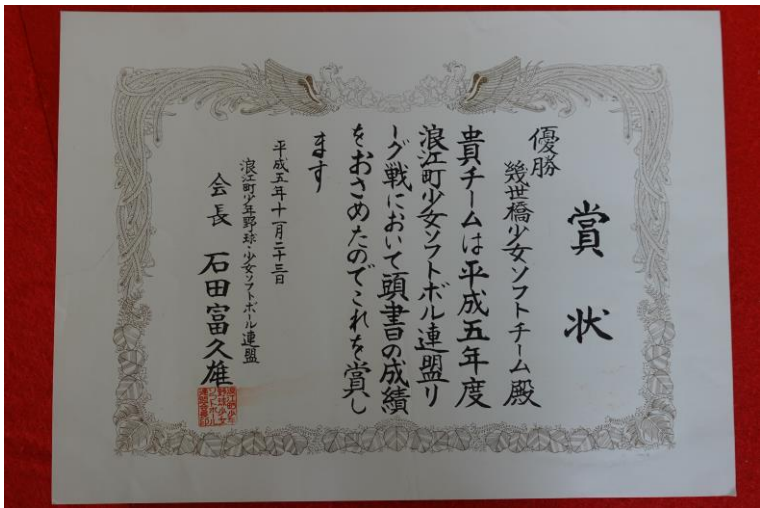 賞状
優勝
幾世橋少女ソフトチーム殿
貴チームは平成五年度
浪江町少女ソフトボル連盟リ
ーグ戦において頭書の成績
をおさめたのでこれを賞し
ます
平成五年十一月二十三日
浪江町少年野球・少女ソフトボール連盟
会長 石田富久雄